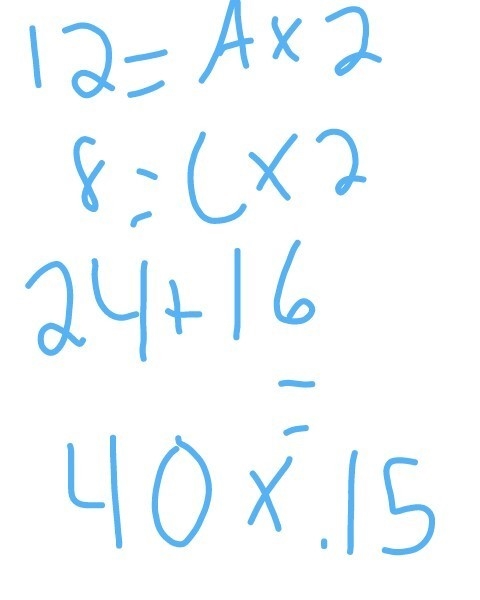 12 = A x 2
8 = C x 2
24 + 16
=
40 x .15